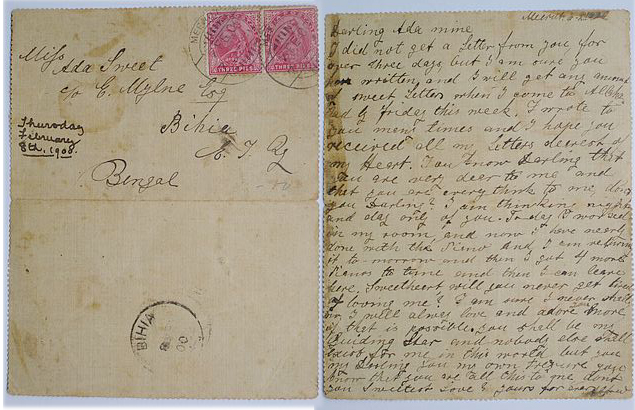 Miss
Ada Sweet
c/o C. Mylne Esq
Bihia
Bengal
Thursday
February
8th, 1906.
THREE PIES
THREE PIES
BIHIA
00
Meerut
Darling Ada mine
I did not get a Letter from you for
over three days but I am sure you
have written and I will get any amount
sweet Letters when I come to Allaha
bad Friday this week. I wrote to
you many times and I hope you
received all my Letters dearest of
my Heart. You know Darling that
you are very dear to me and
that you are every think to me, dont
you Darling? I am thinking night
and day only of you. To day I worked
in my room and now I have nearly
done with the Piano and I am returning
it to-morrow and then I got 4 more
Pianos to tune and then I can leave
here. Sweetheart will you never get tired
of loving me? I am sure I never shall
I will always love and adore you more
if that is possible. you shall be my
Guiding Star and nobody else shall
for me in this world but you
my Darling You my own treasure you
know that you are all this to me dont
you Sweetest Love & yours for ever